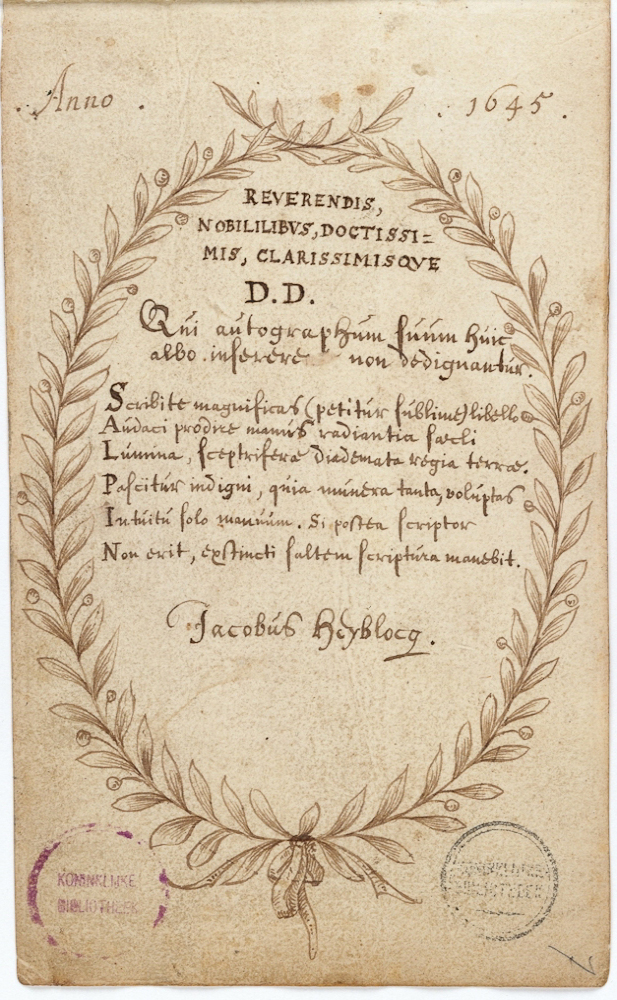 Anno . . 1645 .
REVERENDIS,
NOBILILIBVS, DOCTISSI=
MIS, CLARISSIMISQVE
D.D.
Qui autographum suum huic
albo inserere non dedignantur.
Scribite magnificas (petitur sublime) libello
Audaci prodire manus radiantia saecli
Lumina, sceptriferæ diademata regia terræ.
Pascitur indigni, quia munera tanta, voluptas
Intuitu solo manuum. Si postea scriptor
Non erit, exstincti saltem scriptura manebit.
Jacobus Heyblocq.
KONINKLIJKE
BIBLIOTHEEK